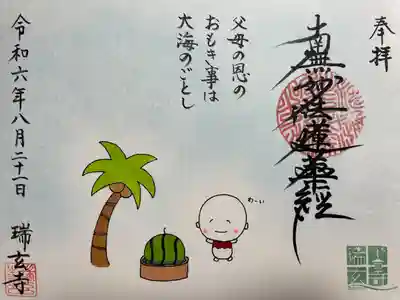 奉拝
南無妙法蓮華経
父母の恩の
おもき事は
大海のごとし
わーい
令和六年八月二十一日
瑞玄寺